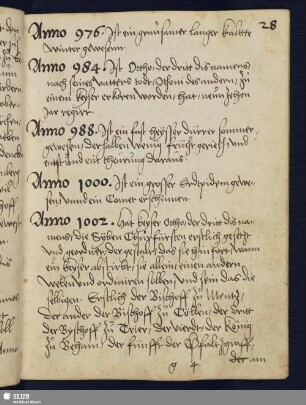 28
Anno 976. Ist ein grausamer langer kaltter
winter gewesenn.
Anno 984. Ist Otho, der drit dis namens,
nach seines vatters todt, Othoni des andern, zu
einem keyser erkoren worden, hat neunzehen
Jar regirt.
Anno 988. Ist ein fast heysser dürrer sommer
gewesen, derhalben wenig frücht geriett, und
entstund ein theurung daraus.
Anno 1000. Ist ein grosser Erdpidem gewe-
sen, unnd ein Comet erschinnen.
Anno 1002. Hat keyser Otho, der dritt dis na-
mens, die Syben Churfürsten erstlich gesetzt
und geordnet, der gestalt, das sie hinfort, wann
ein keyser abstirbt, sie allein einen andern
welen und ordiniren sollen, und sein das die
selbigen. Erstlich der Bischoff zu Mentz,
der ander der Bischoff zu Cöllen, der dritt
der Bischoff zu Trier, der vierdt der König
zu Beham, der fünfft der Pfaltzgraff,
4 der am
SLUB